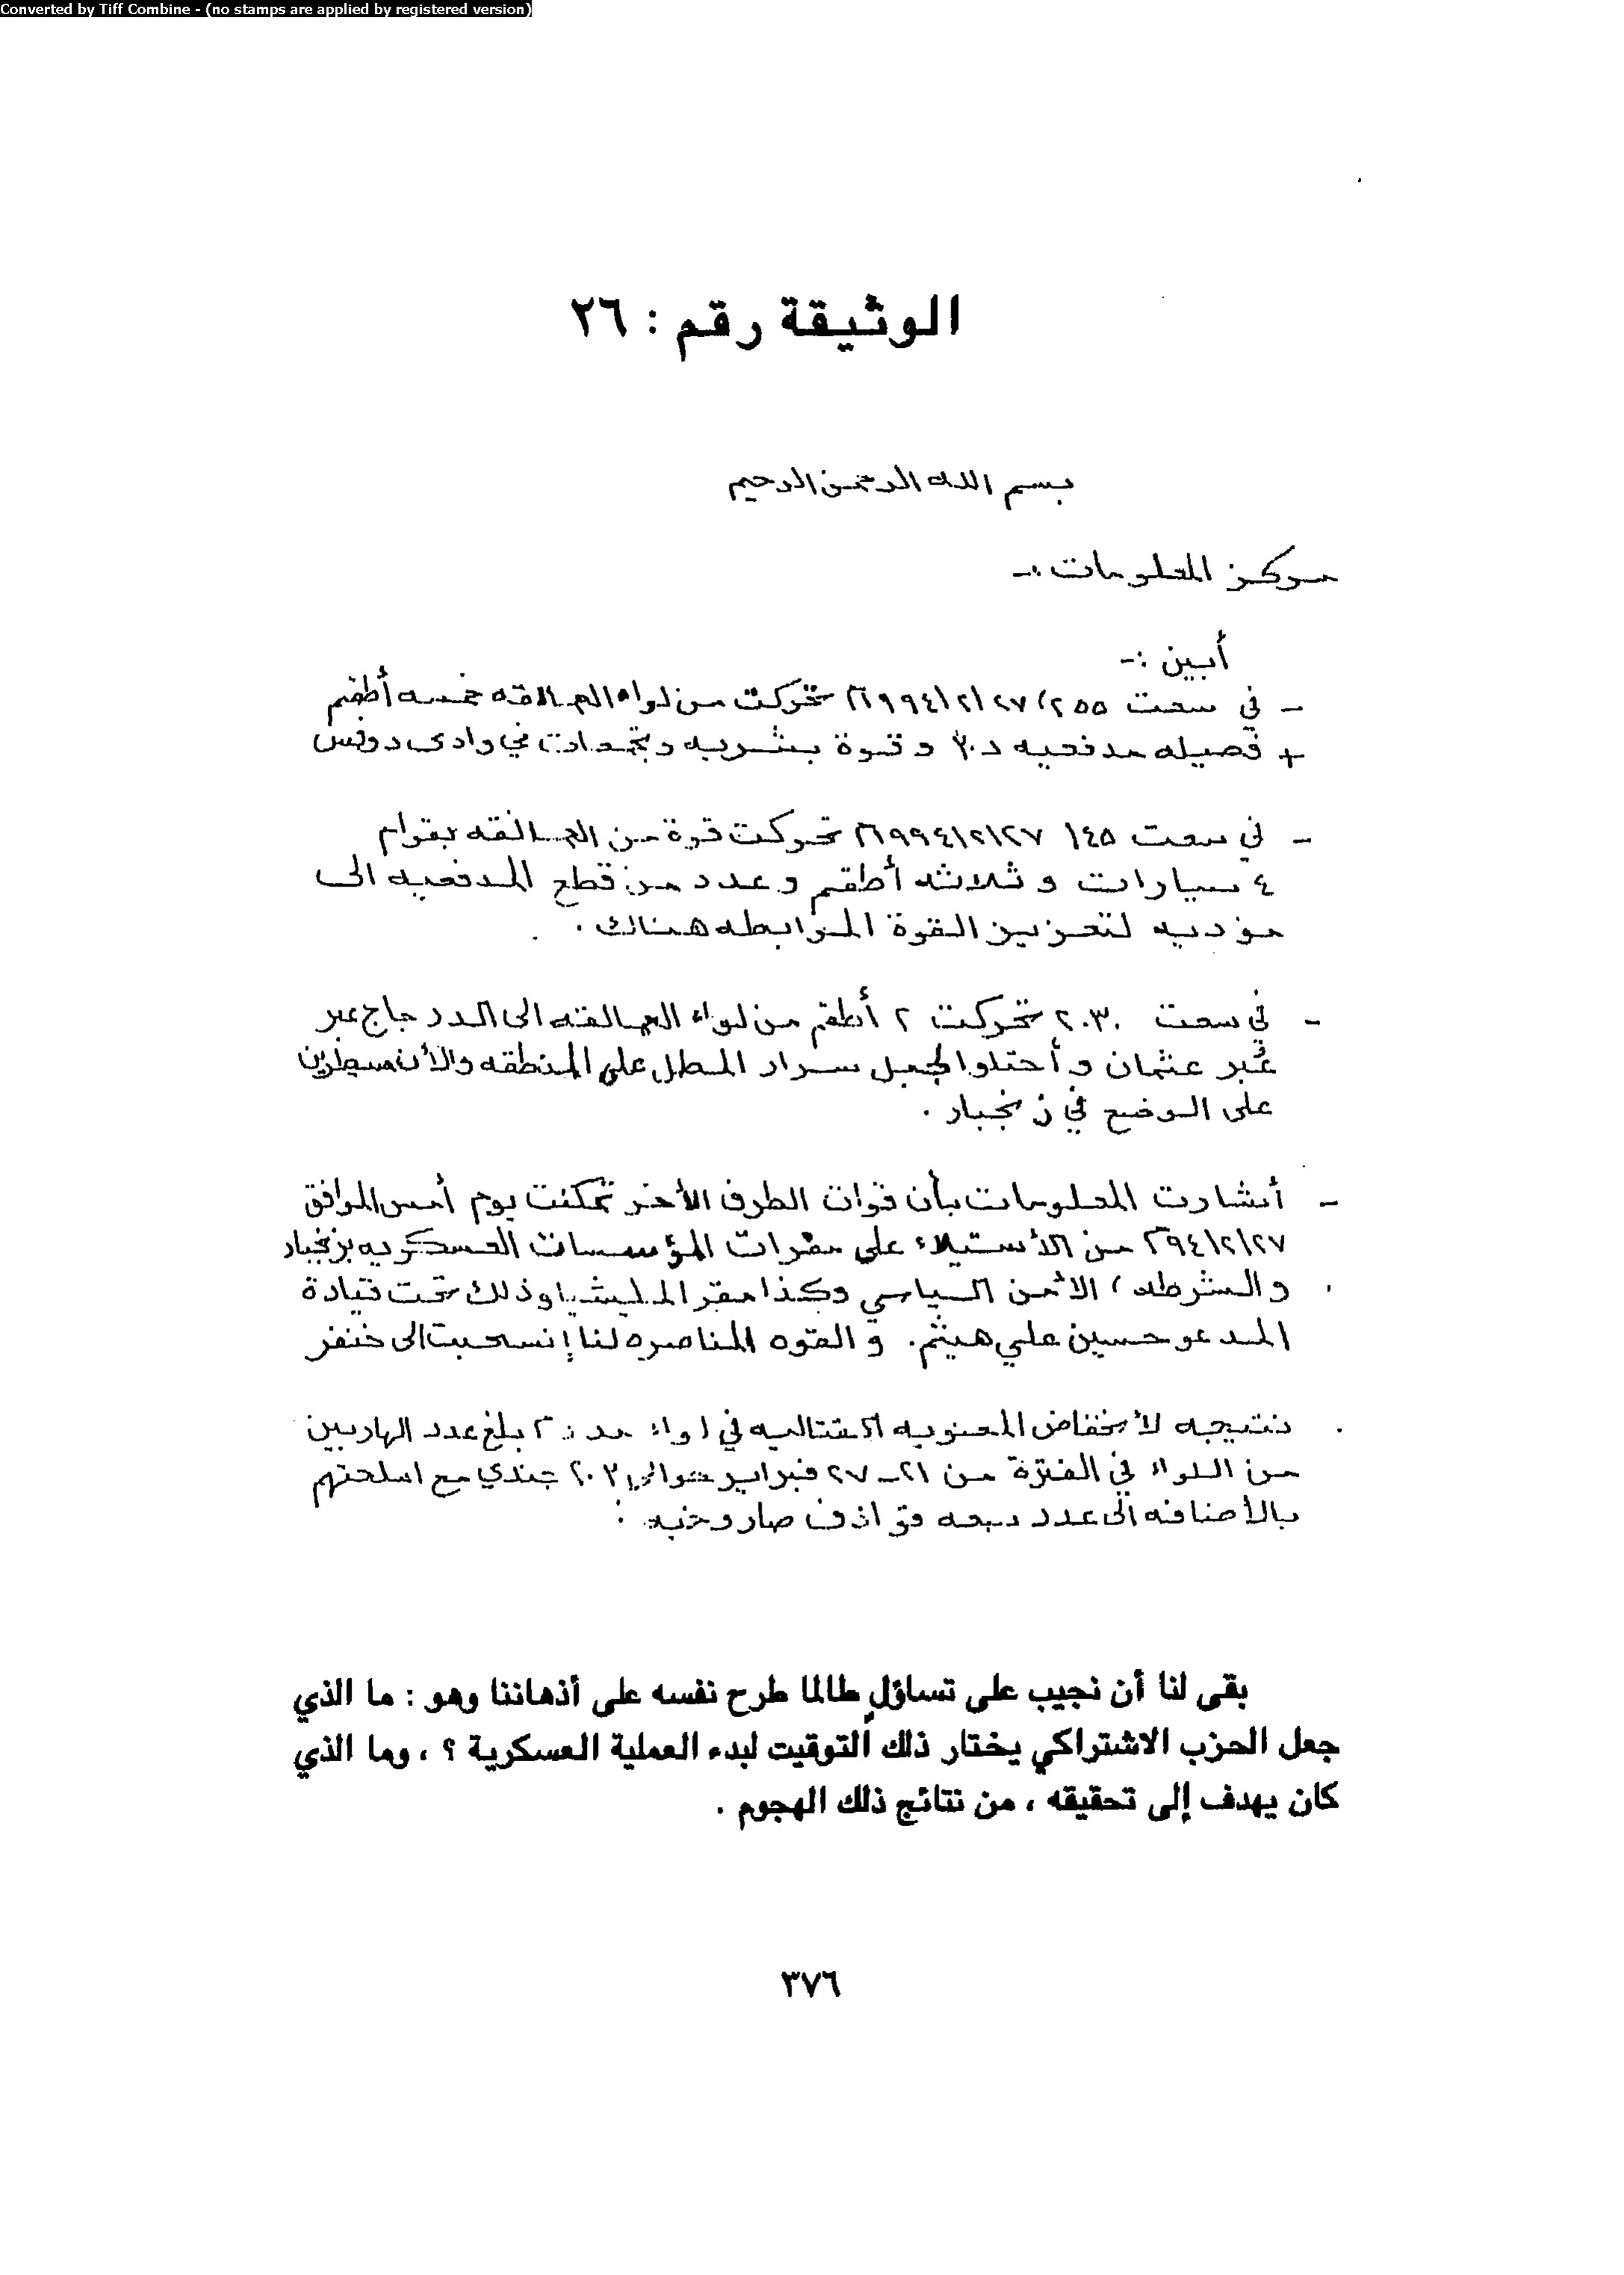 Converted by Tiff Combine - (no stamps are applied by registered version)
الوثيقة رقم : ٢٦
بسم الله الرحمن الرحيم
مركز المعلومات :-
أبين :-
- في سعت ٢٥٥ ٢٧/٢/١٩٩٤م تحركت من لواء العمالقه خمسه أطقم
+ فصيله مدفعيه د.٣٠ وقوة بشريه وتجمعات في وادي دوفس
- في سعت ١٤٥ ٢٧/٢/١٩٩٤م تحركت قوة من العمالقه بقوام
٤ سيارات وثلاثه أطقم وعدد من قطع المدفعيه الى
موديه لتعزيز القوة المرابطه هناك .
- في سعت ٢٠٣٠ تحركت ٢ أطقم من لواء العمالقه الى الدرجاج عبر
عُبر عثمان وأحتلوا لجبل سرار المطل على المنطقه والأن مسيطرين
على الوضع في زنجبار .
- أشارت المعلومات بأن قوات الطرف الأخر تمكنت يوم أمس الموافق
٢٧/٢/٩٤م من الأستيلاء على مقرات المؤسسات العسكريه بزنجبار
والشرطه ، الأمن السياسي وكذا مقر المليشيا وذلك تحت قيادة
المدعو حسين علي هيثم . و القوه المناصره لنا إنسحبت الى خنفر
. نتيجه لأنخفاض المعنويه القتاليه في لواء بلغ عدد الهاربين
من اللواء في الفترة من ٢١ـ٢٧ فبراير حوالي ٢٠٣ جندي مع اسلحتهم
بالأضافه الى عدد سبعه قواذف صاروخيه .
بقى لنا أن نجيب على تساؤلٍ طالما طرح نفسه على أذهاننا وهو : ما الذي
جعل الحزب الاشتراكي يختار ذلك التوقيت لبدء العملية العسكرية ؟ ، وما الذي
كان يهدف إلى تحقيقه ، من نتائج ذلك الهجوم .
٣٧٦